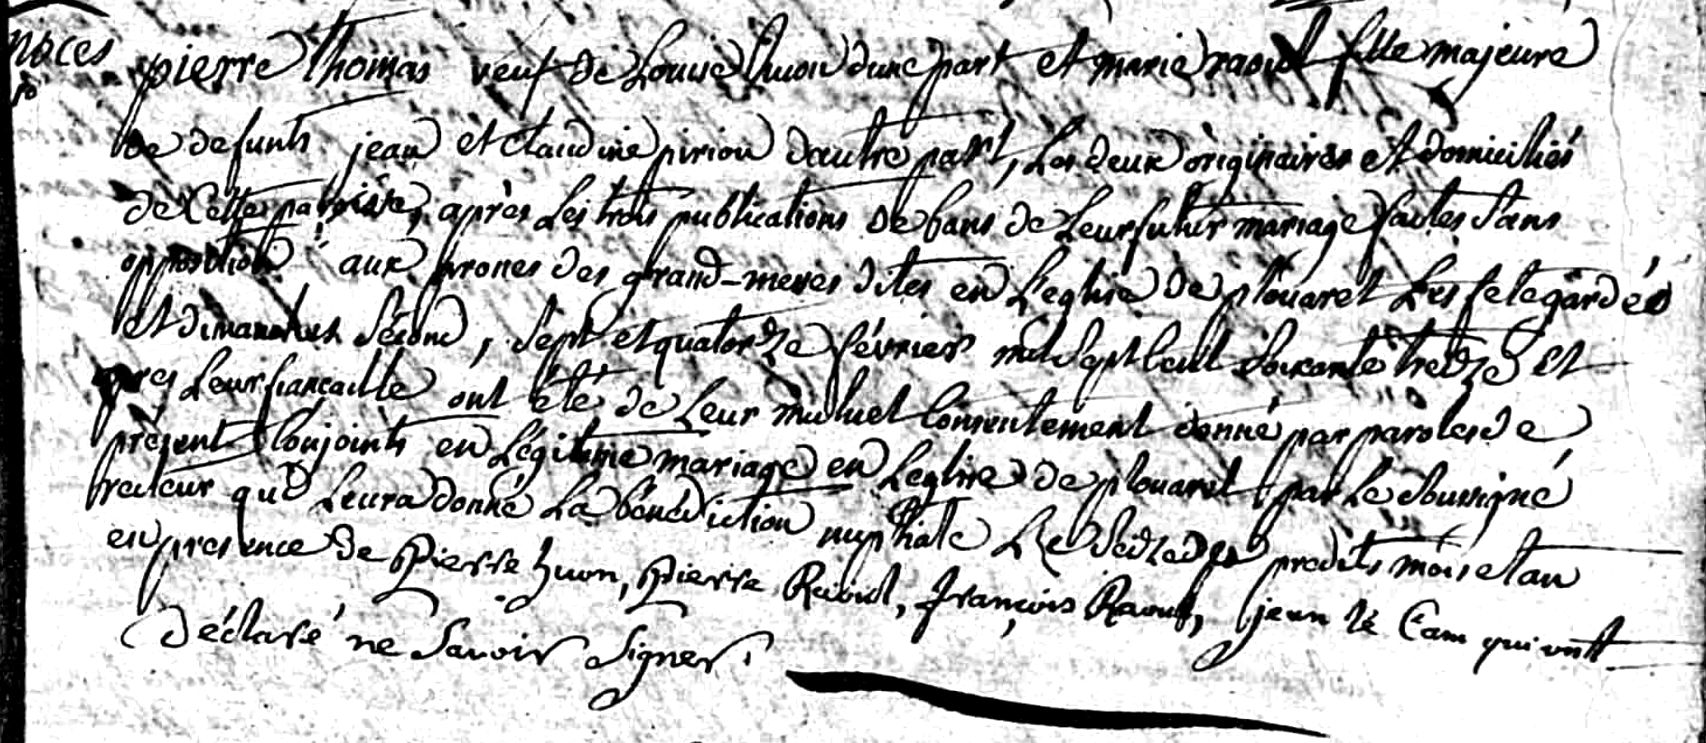 noces
pierre thomas veuf de Louise huon dune part et marie raoul fille majeure
de defunts jean et claudine piriou dautre part, Les deux originaires et domiciliés
de Cette paroisse, après Les trois publications de bans de Leur futur mariage faites Sans
opposition aux prones des grand-meses dites en L'eglise de plouaret Les fete gardéé
et dimanches Sécond, Sept et quatordze février mil Sept Cent Soixante tredze Et
apres Leur fiancaille ont été de Leur mutuel Consentement donné par paroles de
présent Conjoints en Légitime mariage en Leglise de plouaret par Le Soussigné
recteur qui Leur a donné La bénédiction nuptiale Le Seidze des predits mois et an
en presence de Pierre huon, Pierre Raoul, François Raoul, jean le Cam qui ont
Déclaré ne Savoir Signer.